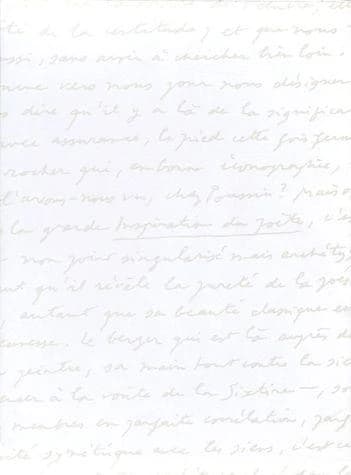 té de la certitude, et que nous
ussi, sans avoir à chercher bien loin.
mène vers nous pour nous désigner
s dire qu'il y a là de la significa
avec assurance, le pied cette fois ferm
rocher qui, en bonne iconographie,
l'avons-nous vu, chez Poussin? Mais o
la grande Inspiration du poète, c'es
non point singularisé mais
qu'il révèle la pureté de la poés
autant que sa beauté classique en
Le berger qui est là auprès de
peintre, sa main tout contre la sie
penser à la voûte de la Sixtine—, so
membres en parfaite corrélation, parf
avec les siens, c'est ce